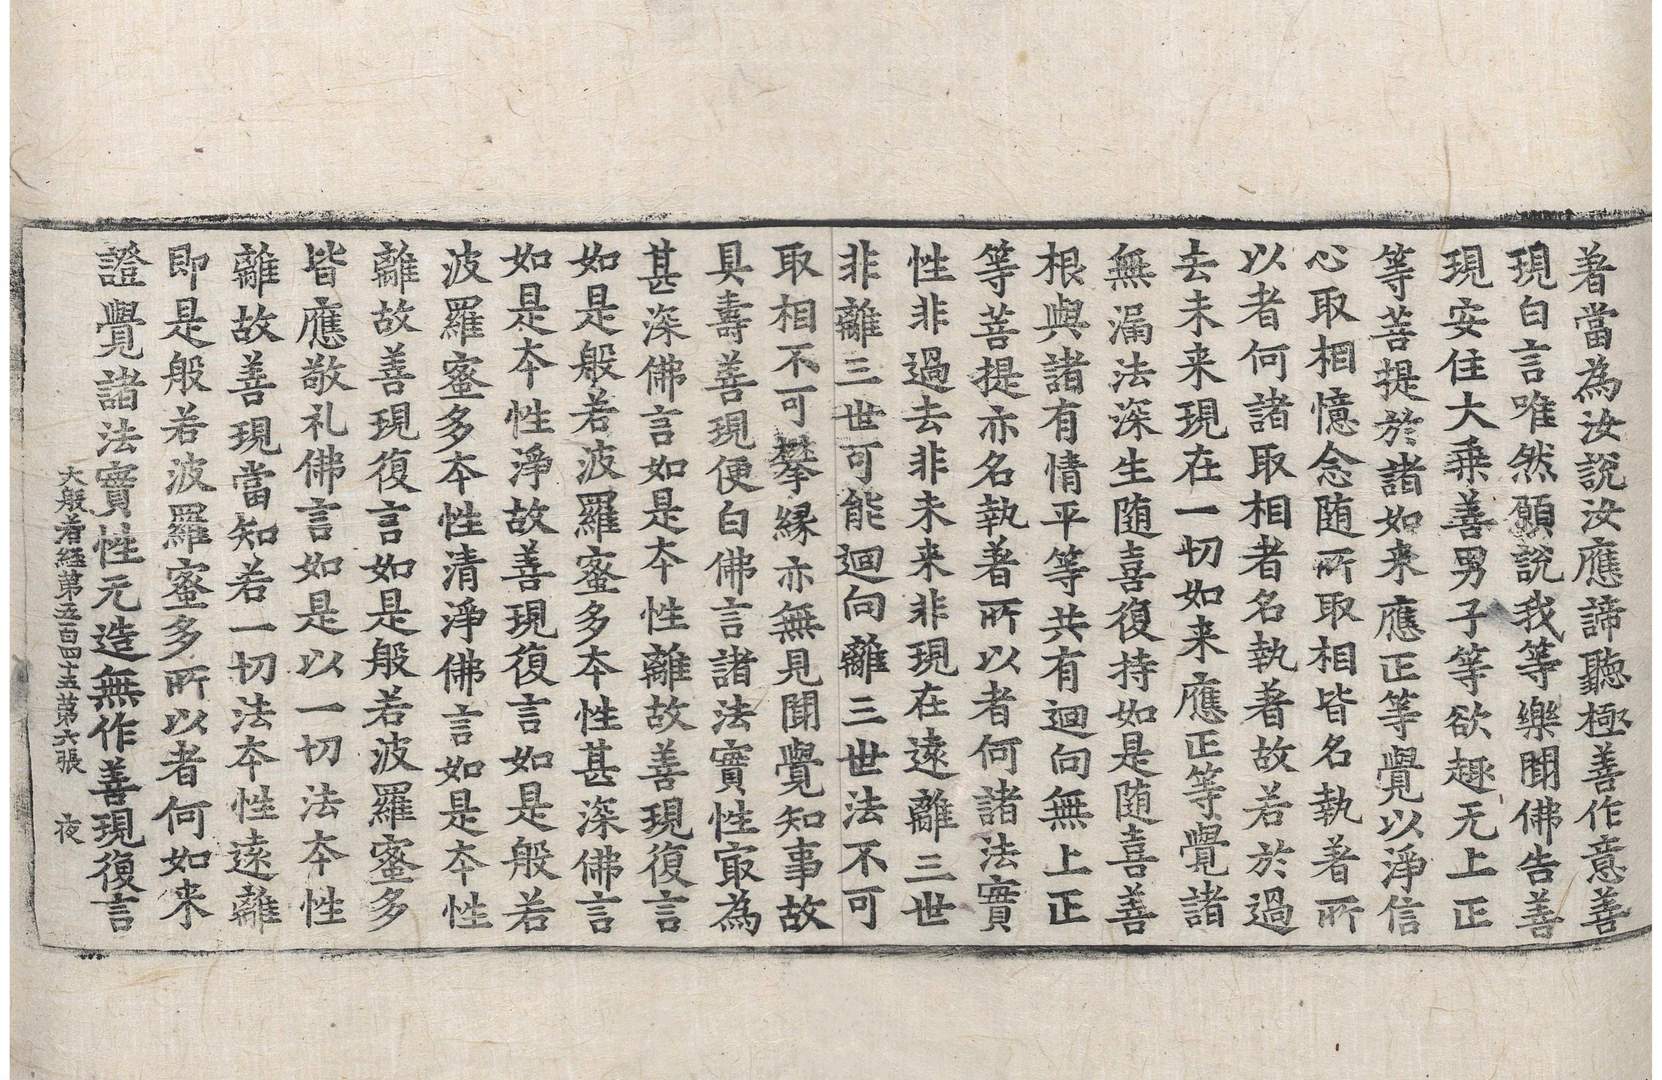 著當為汝說汝應諦聽極善作意善
現白言唯然願說我等樂聞佛告善
現安住大乗善男子等欲趣无上正
等菩提於諸如来應正等覺以淨信
心取相憶念随所取相皆名執著所
以者何諸取相者名執著故若於過
去未来現在一切如来應正等覺諸
無漏法深生随喜復持如是随喜善
根與諸有情平等共有迴向無上正
等菩提亦名執著所以者何諸法實
性非過去非未来非現在遠離三世
非離三世可能迴向離三世法不可
取相不可攀縁亦無見聞覺知事故
具壽善現便白佛言諸法實性㝡為
甚深佛言如是夲性離故善現復言
如是般若波羅蜜多夲性甚深佛言
如是夲性淨故善現復言如是般若
波羅蜜多夲性清淨佛言如是夲性
離故善現復言如是般若波羅蜜多
皆應敬礼佛言如是以一切法夲性
離故善現當知若一切法夲性遠離
即是般若波羅蜜多所以者何如来
證覺諸法實性元造無作善現復言
大般若経第五百四十五第六張 夜